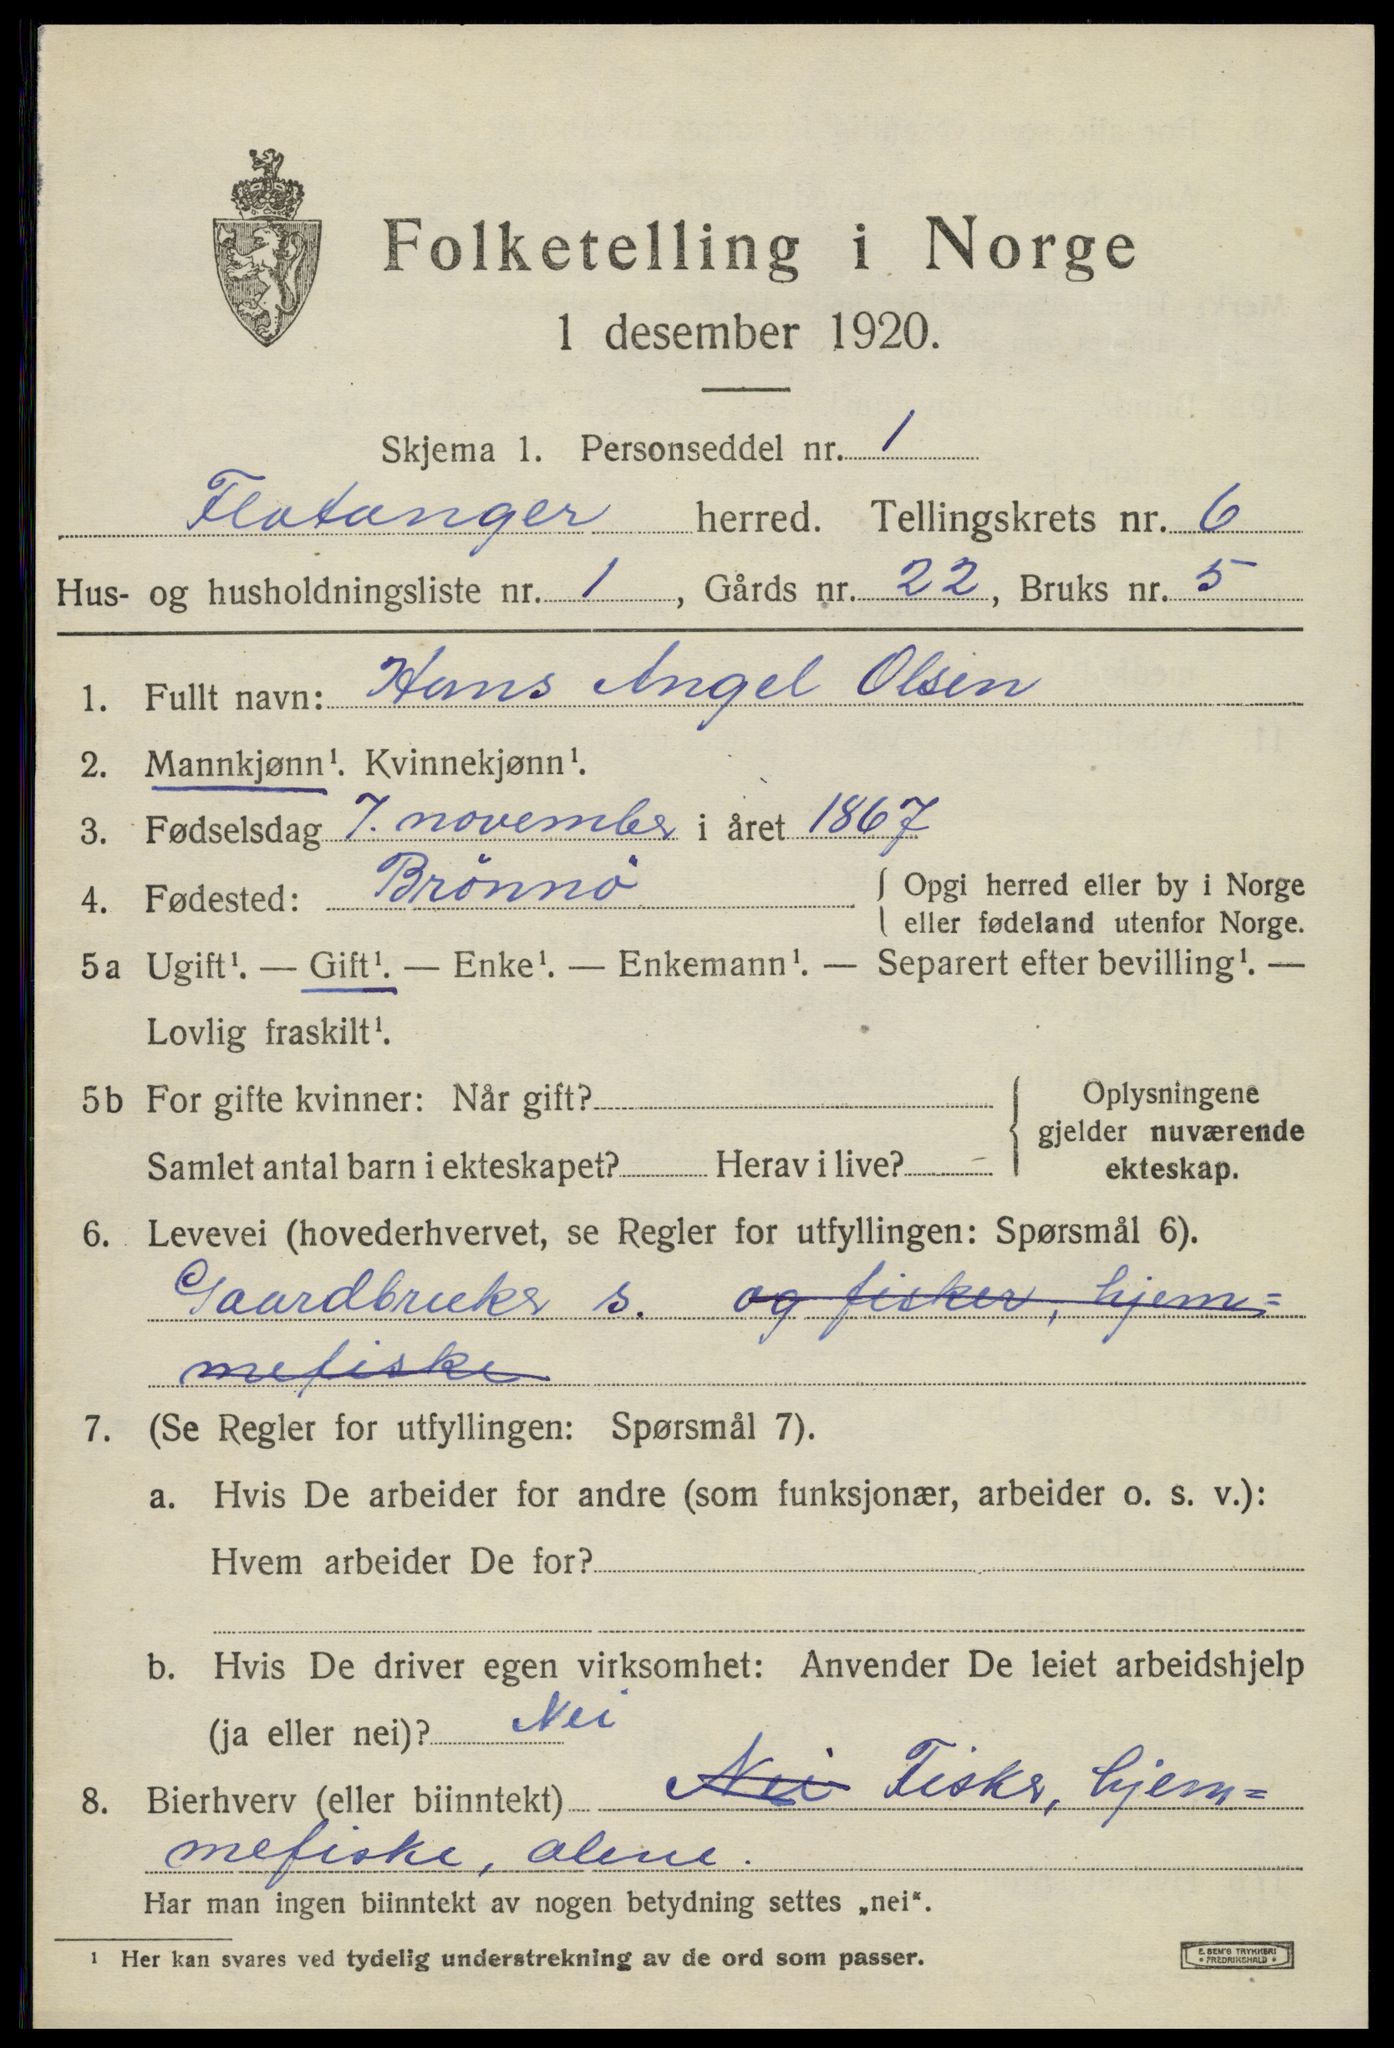 Folketelling i Norge
1 desember 1920.
Skjema 1. Personseddel nr. 1
Flatanger herred. Tellingskrets nr. 6
Hus- og husholdningsliste nr. 1, Gårds nr. 22, Bruks nr. 5
1. Fullt navn: Hans Angel Olsen
2. Mannkjønn¹. Kvinnekjønn¹.
3. Fødselsdag 7. november i året 1867
4. Fødested: Brönnö
Opgi herred eller by i Norge
eller fødeland utenfor Norge.
5a Ugift¹. — Gift¹. — Enke¹. — Enkemann¹. — Separert efter bevilling¹. —
Lovlig fraskilt¹.
5b For gifte kvinner: Når gift?
Samlet antal barn i ekteskapet? Herav i live?
Oplysningene
gjelder nuværende
ekteskap.
6. Levevei (hovederhvervet, se Regler for utfyllingen: Spørsmål 6).
Gaardbruker s. og fisker, hjem=
mefiske
7. (Se Regler for utfyllingen: Spørsmål 7).
a. Hvis De arbeider for andre (som funksjonær, arbeider o. s. v.):
Hvem arbeider De for?
b. Hvis De driver egen virksomhet: Anvender De leiet arbeidshjelp
(ja eller nei)? Nei
8. Bierhverv (eller biinntekt) Nei Fisker, hjem=
mefiske, alene.
Har man ingen biinntekt av nogen betydning settes „nei“.
¹ Her kan svares ved tydelig understrekning av de ord som passer.
E. SEM'S TRYKKERI
FREDRIKSHALD